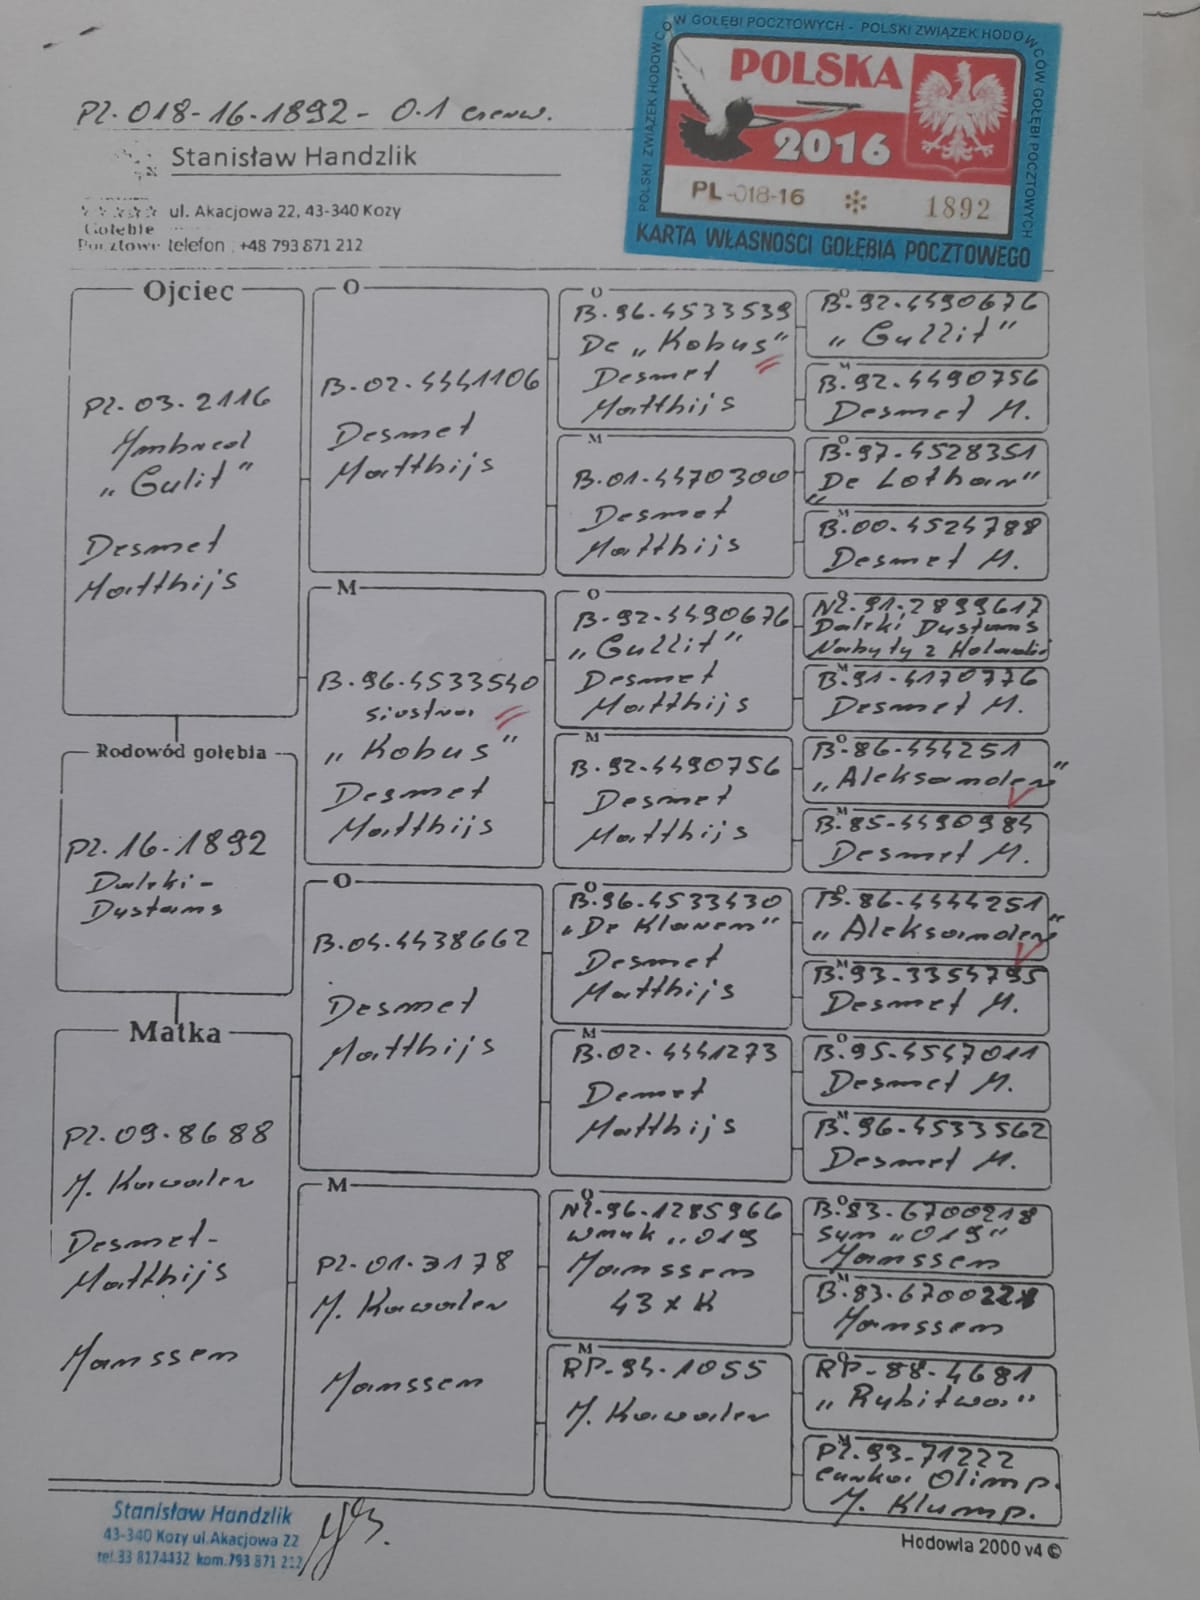 Pl-018-16-1892 - 0.1 czerw.
Stanisław Handzlik
ul. Akacjowa 22, 43-340 Kozy
Gołębie
Pocztowe telefon : +48 793 871 212
POLSKI ZWIĄZEK HODOWCÓW GOŁĘBI POCZTOWYCH - POLSKI ZWIĄZEK HODOWCÓW GOŁĘBI POCZTOWYCH
POLSKA
2016
PL-018-16 1892
KARTA WŁASNOŚCI GOŁĘBIA POCZTOWEGO
Ojciec
Pl-03-2116
Imbred
„Gulit"
Desmet
Matthijs
Rodowód gołębia
Pl-16-1892
Daleki-
Dystans
Matka
Pl-09-8688
J. Kawaler
Desmet-
Matthijs
Janssen
O
B-02-4441106
Desmet
Matthijs
M
B-96-4533540
siostra
„Kobus"
Desmet
Matthijs
O
B-04-4438662
Desmet
Matthijs
M
Pl-01-3178
J. Kawaler
Janssen
O
B-96-4533539
De „Kobus"
Desmet
Matthijs
M
B-01-4470300
Desmet
Matthijs
O
B-92-4490676
„Gullit"
Desmet
Matthijs
M
B-92-4490756
Desmet
Matthijs
O
B-96-4533430
„De Klaren"
Desmet
Matthijs
M
B-02-4441273
Demet
Matthijs
O
NL-96-1285966
wnuk „019
Janssen
43 x K
M
RP-94-1055
J. Kawaler
O
B-92-4490676
„Gullit"
M
B-92-4490756
Desmet M.
O
B-97-4528351
„De Lothar"
M
B-00-4524788
Desmet M.
O
NL-91-2899617
Daleki Dystans
Nabyty z Holandii
M
B-91-4170776
Desmet M.
O
B-86-444251
„Aleksander"
M
B-85-4490984
Desmet M.
O
B-86-4444251
„Aleksander"
M
B-93-3354795
Desmet M.
O
B-95-4547011
Desmet M.
M
B-96-4533562
Desmet M.
O
B-83-6700218
syn „019"
Janssen
M
B-83-6700221
Janssen
O
RP-88-4681
„Rubitwa"
M
Pl-93-71222
carka Olimp.
J. Klump.
Stanisław Handzlik
43-340 Kozy ul.Akacjowa 22
tel.33 8174432 kom.793 871 212
Hodowla 2000 v4 ©